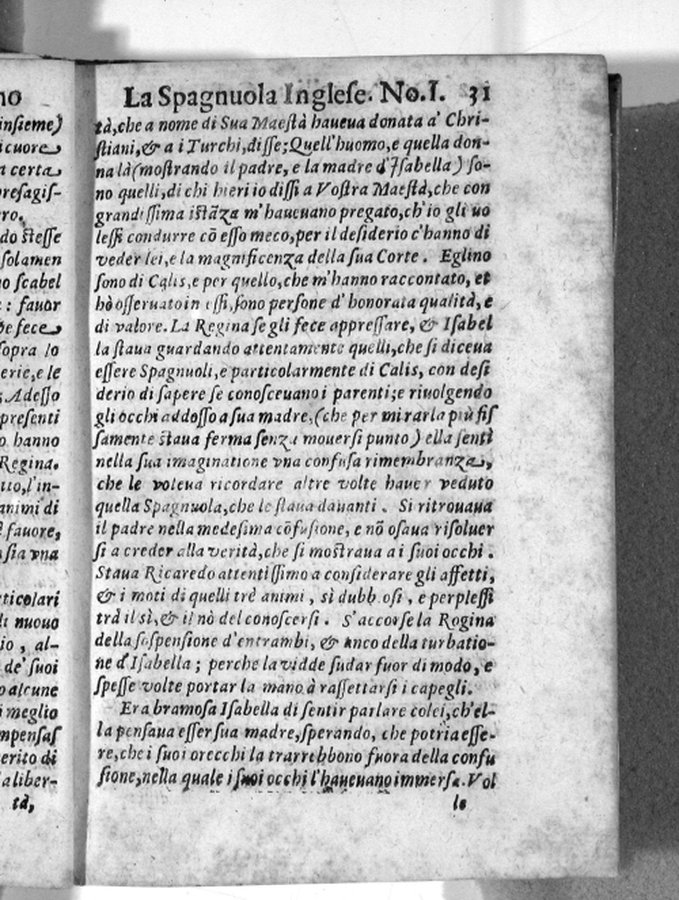 no
insieme)
icuore
a certa
presagis-
ro.
do steſſe
solamen
no scabel
: fauor
he fece
sopra lo
erie,e le
Adeſſo
presenti
o hanno
Regina.
tto,l'in-
animi di
fauore,
sia vna
rticolari
di nuouo
io, al-
de' ſuoi
o alcune
i meglio
mpenſaſ
erito di
a liber-
tà,
La Spagnuola Ingleſe. No.I. 31
tà,che a nome di Sua Maeſtà haueua donata a' Chri-
ſtiani,& a i Turchi,diſſe;Quell'huomo,e quella don-
na là(moſtrando il padre, e la madre d'Iſabella) ſo-
no quelli,di chi hieri io diſſi a Voſtra Maeſtà,che con
grandiſſima iſtāza m'haueuano pregato,ch'io gli uo
leſſi condurre cō eſſo meco,per il deſiderio c'hanno di
veder lei,e la magnificenza della ſua Corte. Eglino
ſono di Calis,e per quello,che m'hanno raccontato, et
hò oſſeruato in eſſi,ſono perſone d'honorata qualità, e
di valore. La Regina ſe gli fece appreſſare, & Iſabel
la ſtaua guardando attentamente quelli,che ſi diceua
eſſere Spagnuoli,e particolarmente di Calis, con deſi
derio di ſapere ſe conoſceuano i parenti;e riuolgendo
gli occhi addoſſo a ſua madre,(che per mirarla più fiſ
ſamente ſtaua ferma ſenza mouerſi punto) ella ſentì
nella ſua imaginatione vna confuſa rimembranza,
che le voleua ricordare altre volte hauer veduto
quella Spagnuola,che le ſtaua dauanti. Si ritrouaua
il padre nella medeſima cōfuſione, e nō oſaua riſoluer
ſi a creder alla verità,che ſi moſtraua a i ſuoi occhi.
Staua Ricaredo attentiſſimo a conſiderare gli affetti,
& i moti di quelli trè animi, sì dubbioſi, e perpleſſi
trà il sì,& il nò del conoſcerſi. S'accorſe la Regina
della ſoſpenſione d'entrambi, & anco della turbatio-
ne d'Iſabella; perche la vidde ſudar fuor di modo, e
ſpeſſe volte portar la mano à raſſettarſi i capegli.
Era bramoſa Iſabella di ſentir parlare colei,ch'el-
la penſaua eſſer ſua madre,ſperando, che potria eſſe-
re,che i ſuoi orecchi la trarrebbono fuora della confu
ſione,nella quale i ſuoi occhi l'haueuano immerſa. Vol
le